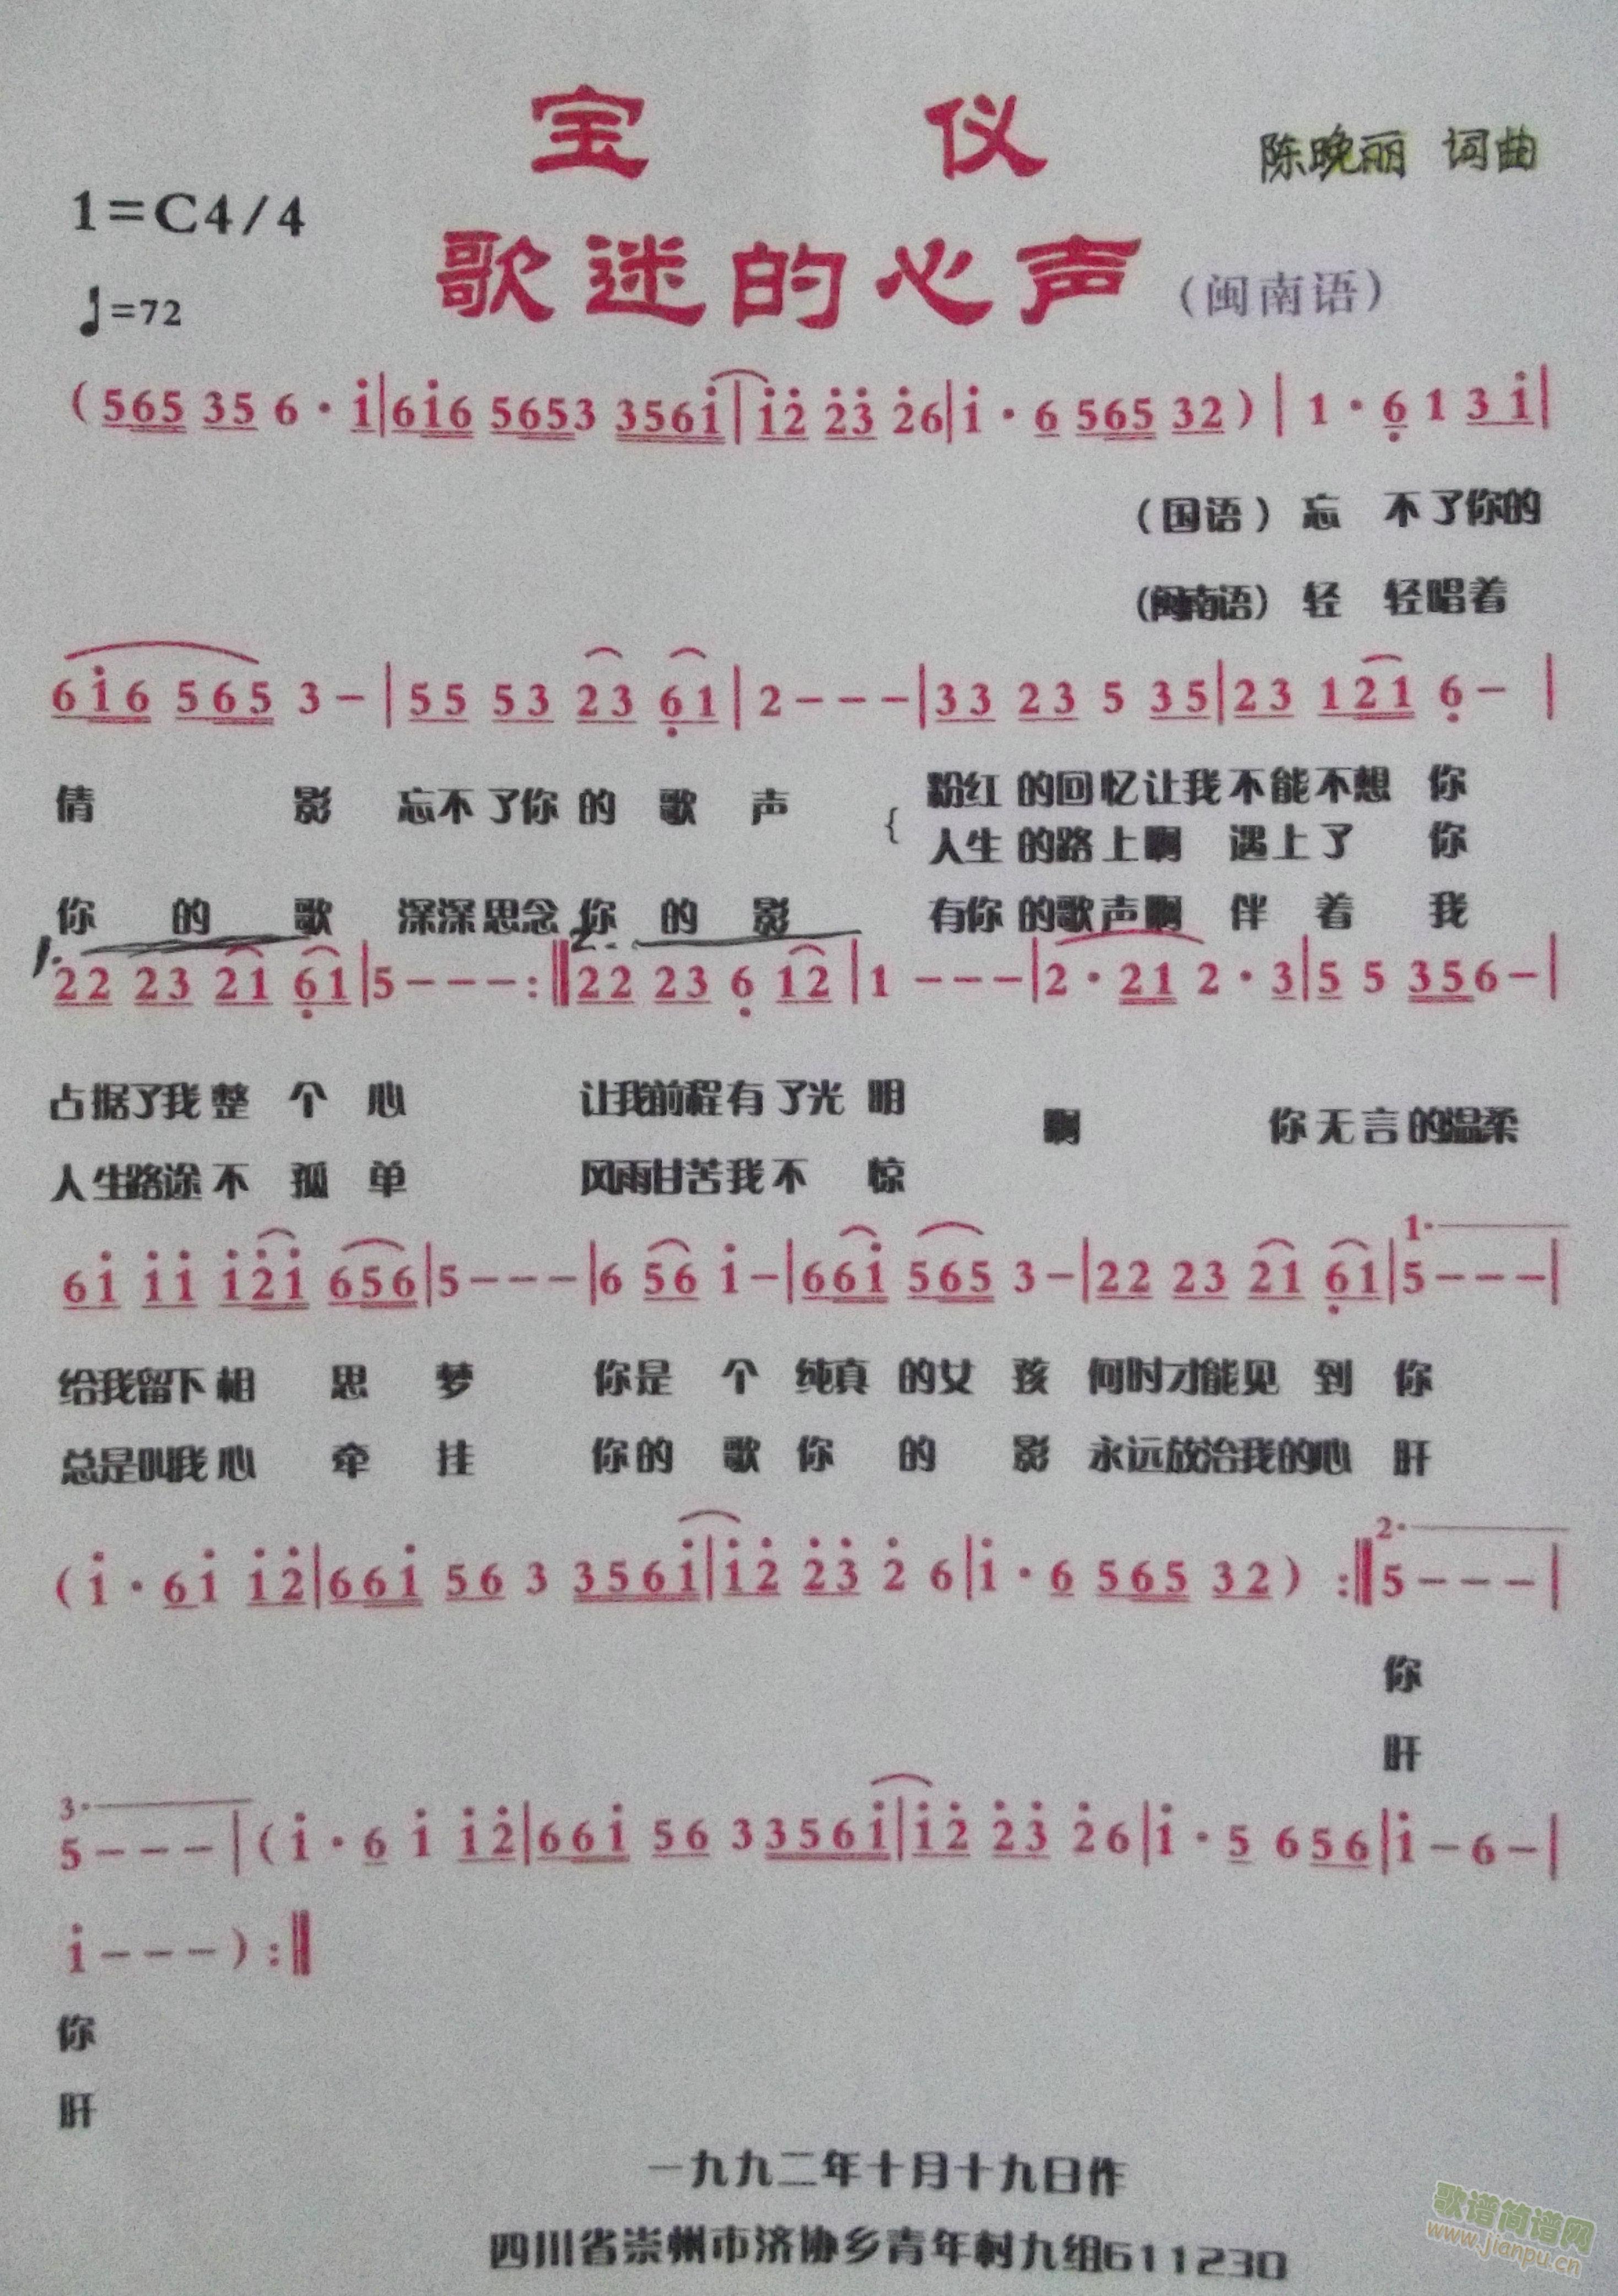 宝 仪
陈晚丽 词曲
1=C4/4
歌迷的心声(闽南语)
♩=72
(565 35 6·i|6i6 5653 356i|i2̇ 2̇3̇ 2̇6|i·6 565 32)|1·6̣ 1 3 i|
(国语)忘 不了你的
(闽南语)轻 轻唱着
6i6 565 3-|55 53 23 6̣1|2---|33 23 5 35|23 121 6̣-|
倩 影 忘不了你的 歌 声 { 粉红的回忆让我不能不想 你
人生的路上啊 遇上了 你
你 的 歌 深深思念你 的 影 有你的歌声啊 伴 着 我
1. 2.
22 23 21 6̣1|5---:‖22 23 6̣ 12|1---|2·21 2·3|5 5 356-|
占据了我整 个 心 让我前程有了光 明 啊 你无言的温柔
人生路途不 孤 单 风雨甘苦我不 惊
1.
6i ii i2̇i 656|5---|6 56 i-|66i 565 3-|22 23 21 6̣1|5---|
给我留下相 思 梦 你是 个 纯真 的女 孩 何时才能见 到 你
总是叫我心 牵 挂 你的 歌 你 的 影 永远放治我的心 肝
2.
(i·6i i2̇|66i 56 3 356i|i2̇ 2̇3̇ 2̇ 6|i·6 565 32):‖5---|
你
肝
3.
5---|(i·6 i i2̇|66i 56 3356i|i2̇ 2̇3̇ 2̇6|i·5 656|i-6-|
i---):‖
你
肝
一九九二年十月十九日作
四川省崇州市济协乡青年村九组611230
歌谱简谱网
www.jianpu.cn